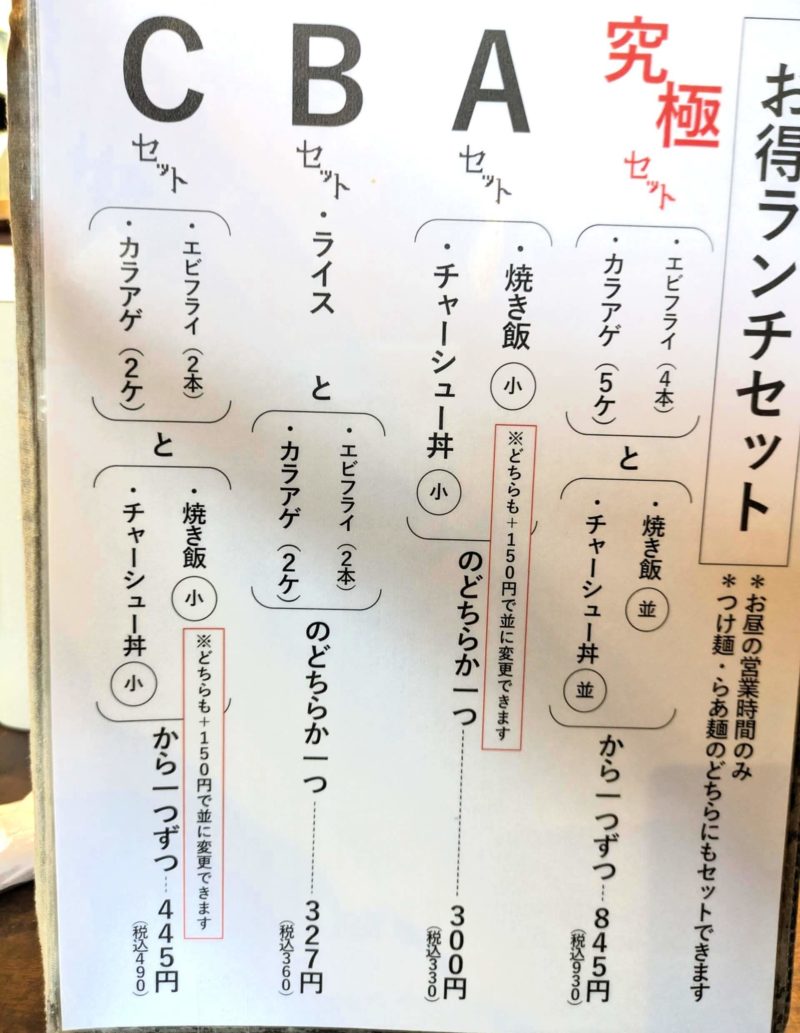 お得ランチセット
＊お昼の営業時間のみ
＊つけ麺・らあ麺のどちらにもセットできます
究極
セット
・エビフライ（４本）
・カラアゲ（５ケ）
と
・焼き飯 並
・チャーシュー丼 並
から一つずつ
845円
（税込930）
A
セット
・焼き飯 小
・チャーシュー丼 小
※どちらも＋150円で並に変更できます
のどちらか一つ
300円
（税込330）
B
セット
・ライス
と
・エビフライ（２本）
・カラアゲ（２ケ）
のどちらか一つ
327円
（税込360）
C
セット
・エビフライ（２本）
・カラアゲ（２ケ）
と
・焼き飯 小
・チャーシュー丼 小
※どちらも＋150円で並に変更できます
から一つずつ
445円
（税込490）